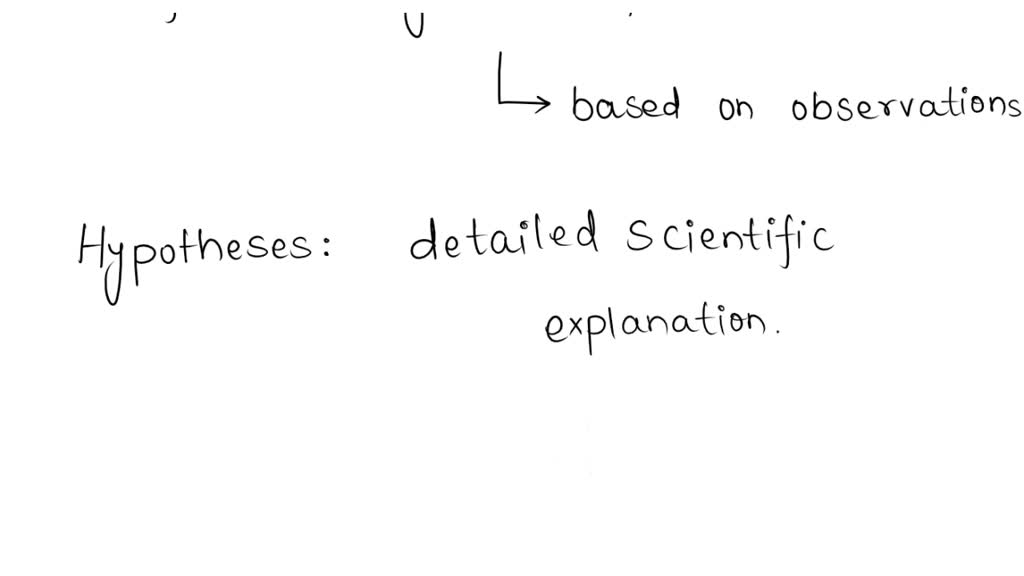 based on observations
Hypotheses: detailed scientific
explanation.